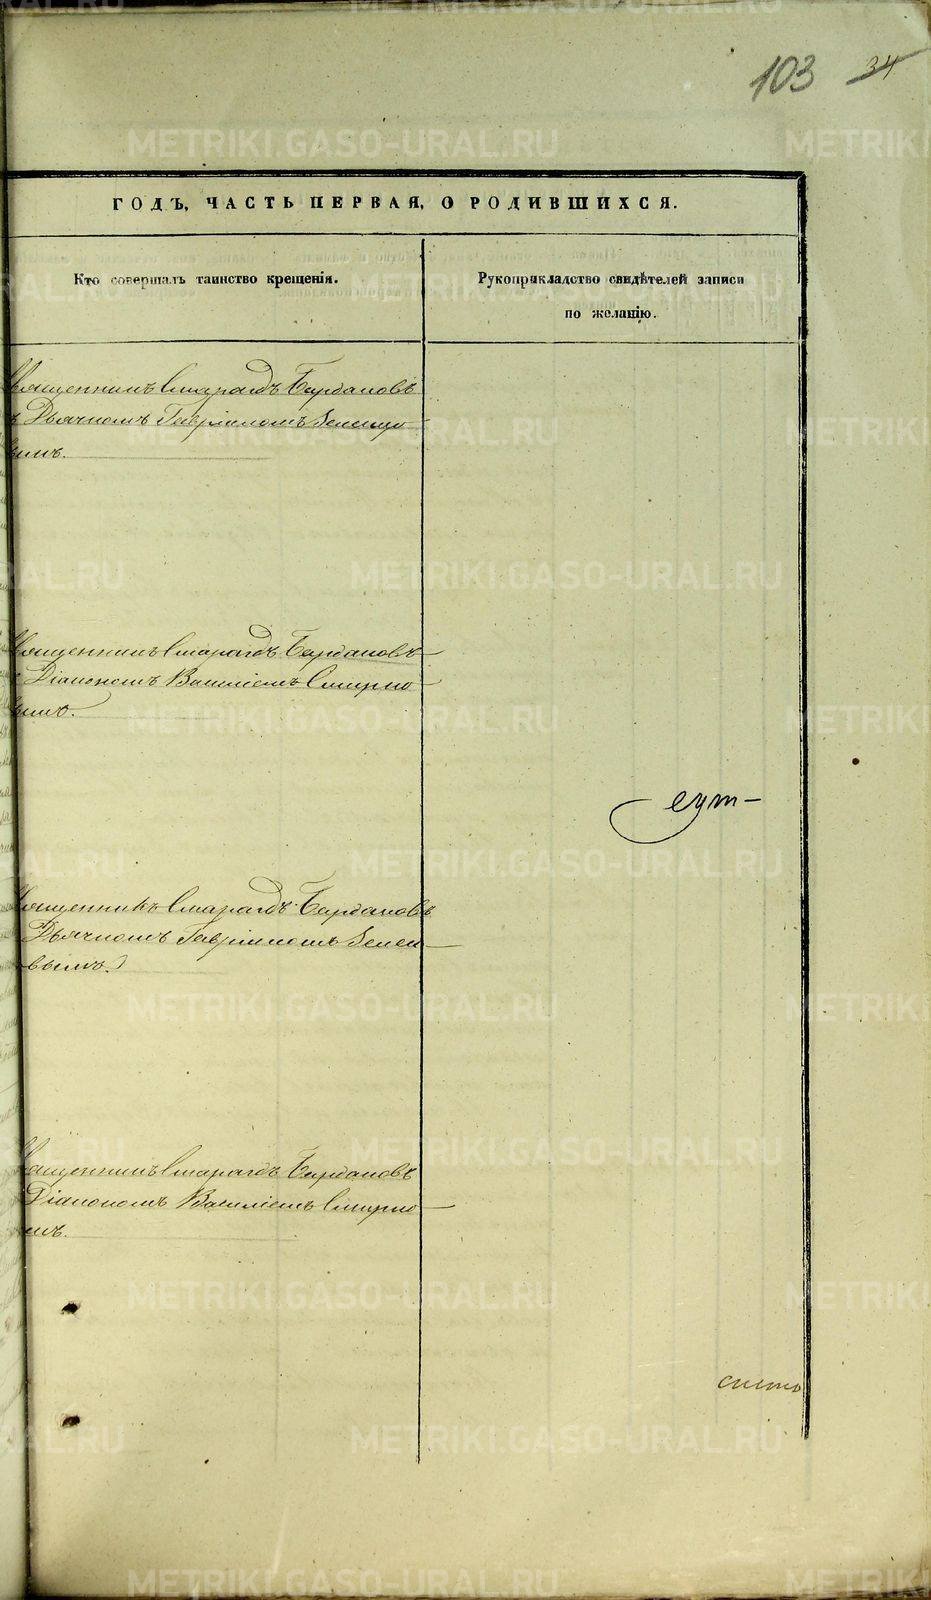 103 34
ГОДЪ, ЧАСТЬ ПЕРВАЯ, О РОДИВШИХСЯ.
Кто совершалъ таинство крещенія.
Рукоприкладство свидѣтелей записи
по желанію.
Священникъ Смарагдъ Бардановъ
съ Дьячкомъ Гавріиломъ
вымъ.
Священникъ Смарагдъ Бардановъ
Діакономъ Василіемъ Смирно
вымъ.
Священникъ Смарагдъ Бардановъ
Дьячкомъ Гавріиломъ
вымъ.
Священникъ Смарагдъ Бардановъ
Діакономъ Василіемъ Смирно
мъ.
METRIKI.GASO-URAL.RU